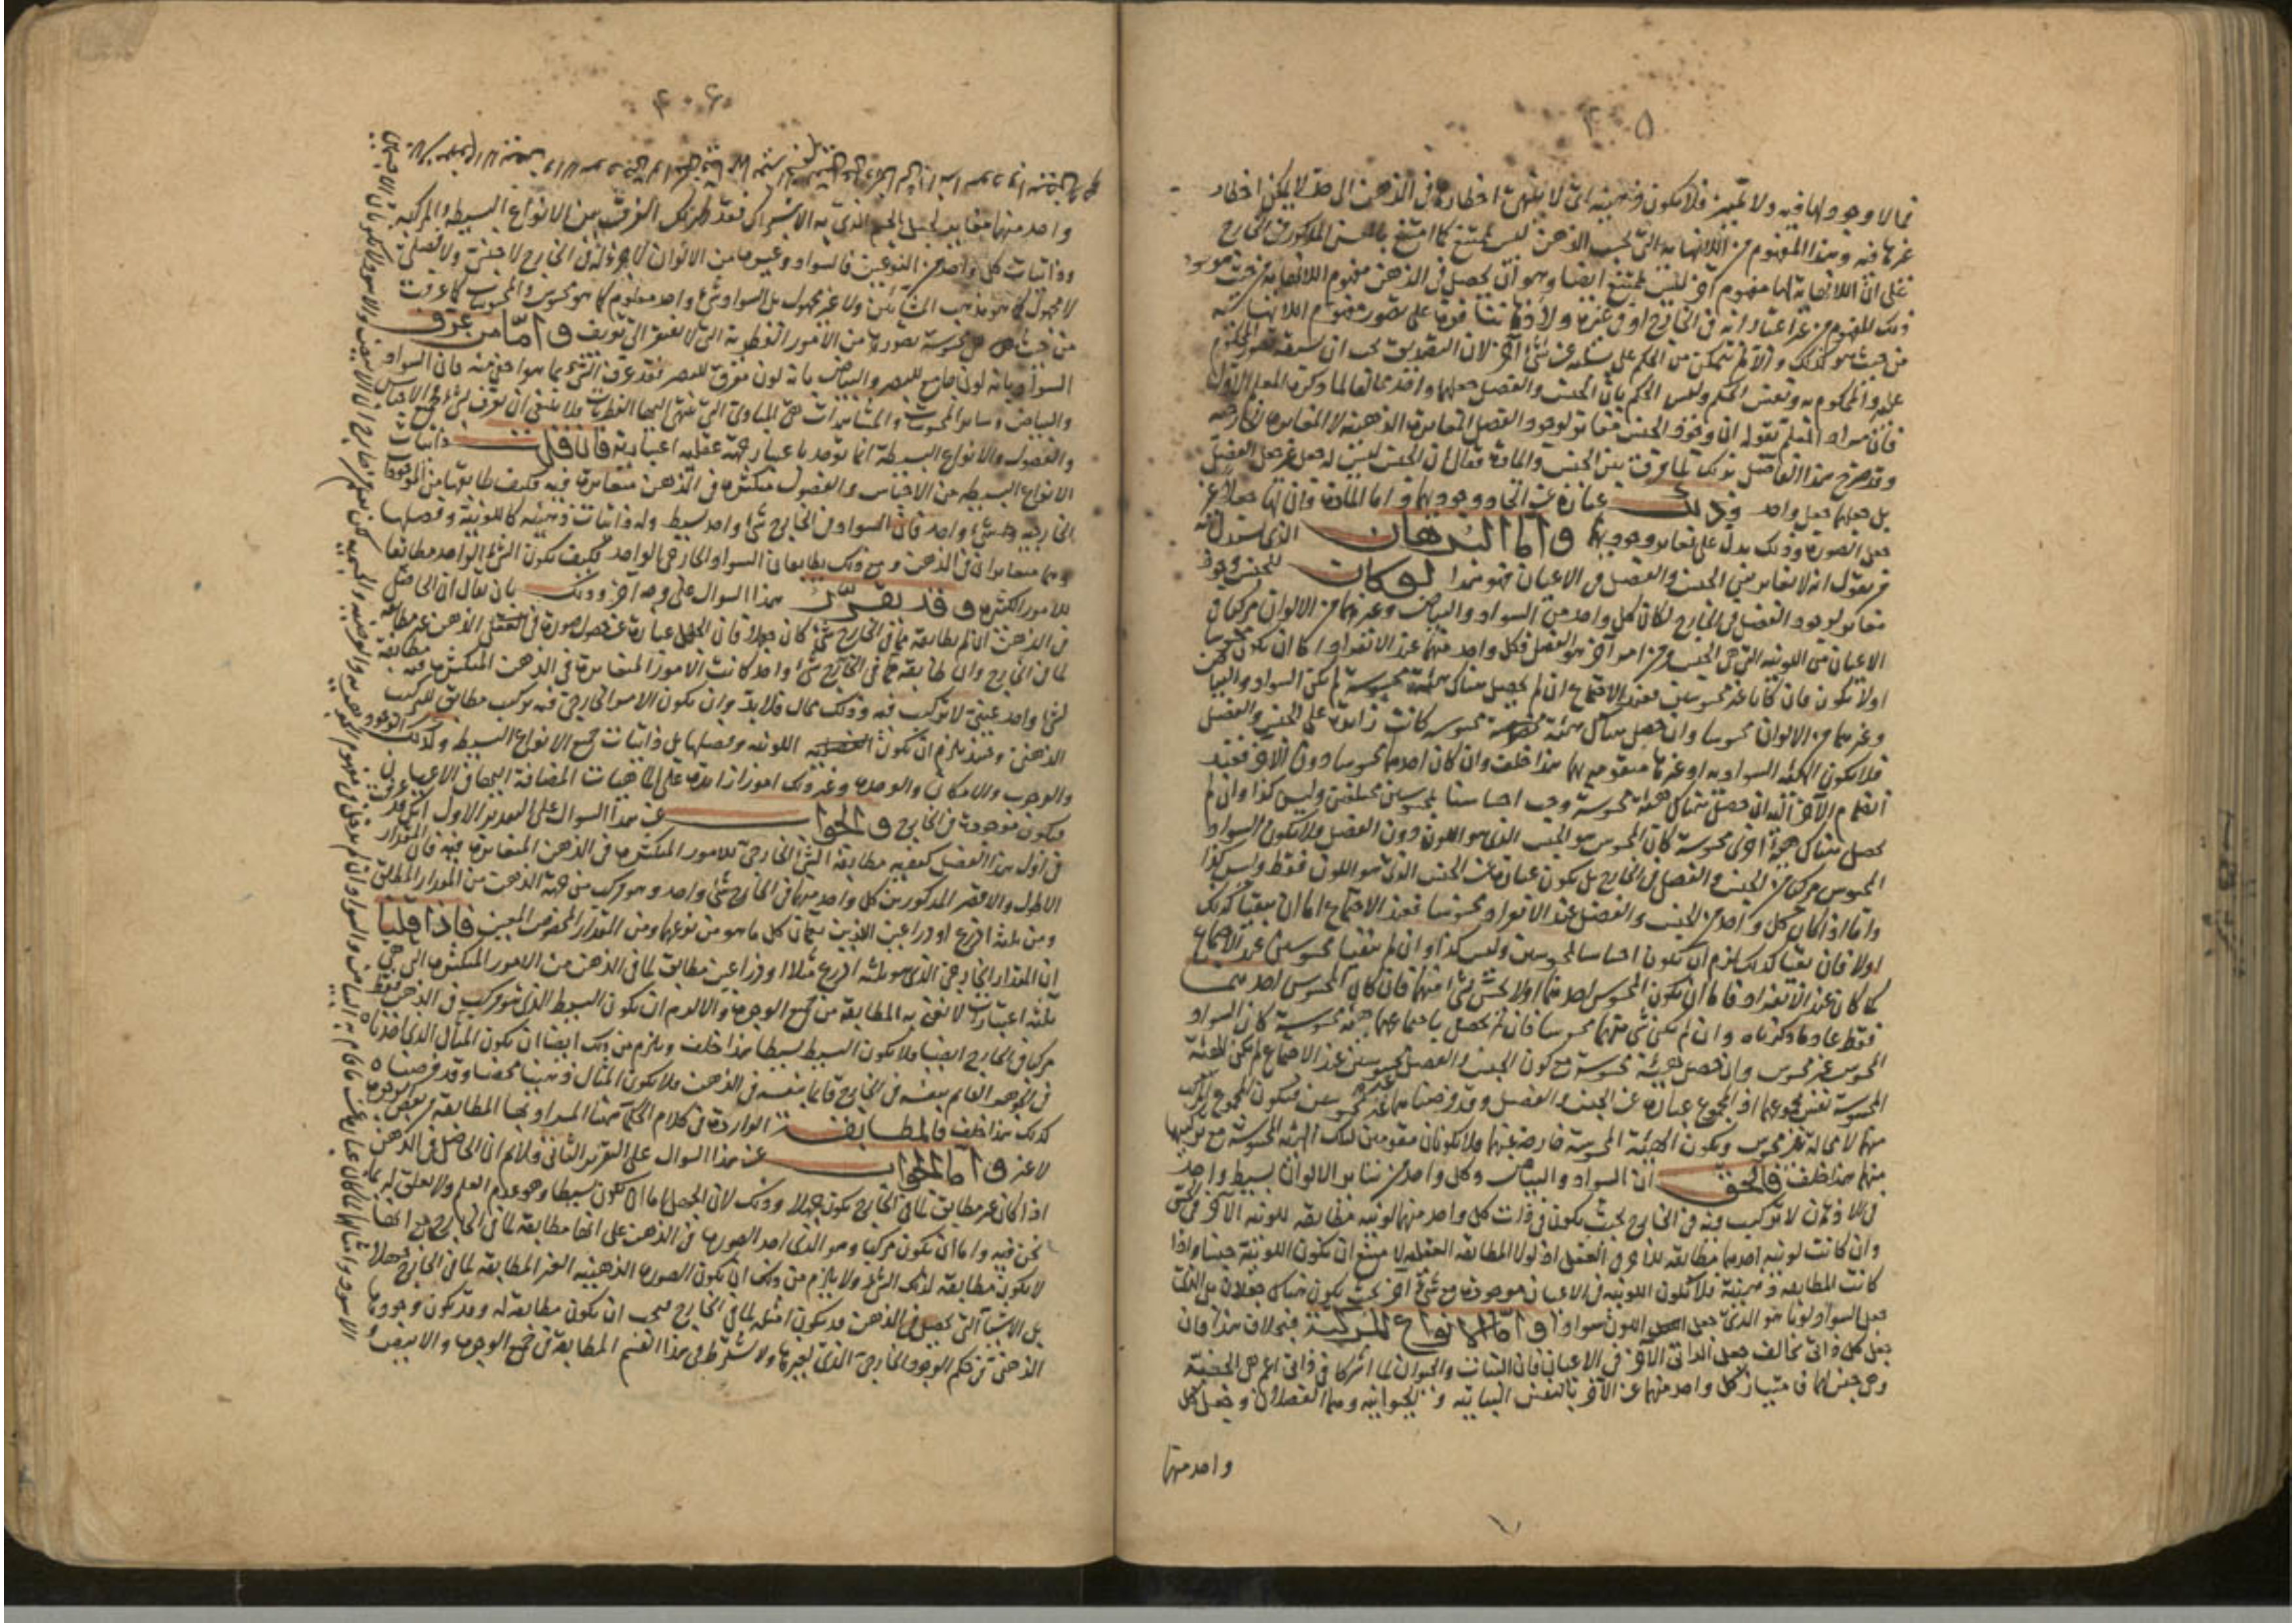 ٤٠٥
مما لا وجود لها فيه ولا تميز فلا يكون ذهنية اى لا ينتهى اخطارها فى الذهن الى حد لا يمكن اخطار
غيرها فيه وهذا المفهوم من اللانهاية التى بحسب الذهن ليس بممتنع كما امتنع بالمعنى المذكور فى الخارج
على ان اللانهاية لها مفهوم آخر ليس بممتنع ايضا وهو ان يحصل فى الذهن مفهوم اللانهاية من حيث هو
ذلك المفهوم من غير اعتبار انه فى الخارج او فى غيره ولا على تصور مفهوم اللانهاية
من حيث هو كذلك والا لم نتمكن من الحكم على شىء آخر لان التصديق يجب ان يسبقه تصور المحكوم
عليه والمحكوم به ونفس الحكم وليس الحكم بان الجنس والفصل جعلهما واحد مخالفا لما ذكره المعلم الاول
فان مراد المعلم بقوله ان وجود الجنس مغاير لوجود الفصل المغايرة الذهنية لا المغايرة الخارجية
وقد صرح هذا الفاضل بذلك لما فرق بين الجنس والمادة فقال ان الجنس ليس له جعل غير جعل الفصل
بل جعلهما جعل واحد وذلك عبارة عن اتحاد وجوديهما واما المادة فان لها جعلا غير
جعل الصورة وذلك يدل على تغاير وجوديهما واما البرهان الذى يستدل به
من يقول انه لا تغاير بين الجنس والفصل فى الاعيان فهو هذا لو كان للجنس وجود
مغاير لوجود الفصل فى الخارج لكان كل واحد من السواد والبياض وغيرهما من الالوان مركبا فى
الاعيان من اللونية التى هى الجنس ومن امر آخر هو الفصل فكل واحد منهما عند الانفراد اما ان يكون محسوسا
او لا يكون فان كانا غير محسوسين فعند الاجتماع ان لم يحصل هناك هيئة محسوسة لم يكن السواد والبياض
وغيرهما من الالوان محسوسا وان حصل هناك هيئة محسوسة كانت زائدة على الجنس والفصل
فلا يكون الهيئة السوادية او غيرها متقومة بهما هذا خلف وان كان احدهما محسوسا دون الآخر فعند
انضمام الآخر اليه ان حصل هناك هيئة محسوسة وجب احساسنا بمحسوسين مختلفين وليس كذا وان لم
يحصل هناك هيئة اخرى محسوسة كان المحسوس هو الجنس الذى هو اللون دون الفصل ولا يكون السواد
المحسوس مركبا من الجنس والفصل فى الخارج بل يكون عبارة عن الجنس الذى هو اللون فقط وليس كذا
واما اذا كان كل واحد من الجنس والفصل عند الانفراد محسوسا فعند الاجتماع اما ان يبقيا كذلك
اولا فان بقيا كذلك لزم ان يكون احساسا بمحسوسين وليس كذا وان لم يبقيا محسوسين عند الاجتماع
كما كان عند الانفراد فاما ان يكون المحسوس احدهما او لا يحس بشىء منهما فان كان المحسوس احدهما
فقط عاد ما ذكرناه وان لم يكن شىء منهما محسوسا فان لم يحصل باجتماعهما هيئة محسوسة كان السواد
المحسوس غير محسوس وان حصل هيئة محسوسة مع كون الجنس والفصل غير محسوسين عند الاجتماع لم يكن الهيئة
المحسوسة نفس مجموعهما اذ المجموع عبارة عن الجنس والفصل وقد فرضناهما غير محسوسين فيكون المجموع المركب
منهما لا محالة غير محسوس ويكون الهيئة المحسوسة خارجة عنهما فلا يكونان مقومين لتلك الهيئة المحسوسة مع تركبها
منهما هذا خلف فالحق ان السواد والبياض وكل واحد من سائر الالوان بسيط واحد
فى الاعيان لا تركيب فيه فى الخارج بحيث يكون فى ذات كل واحد منهما لونية مطابقة للونية الآخر
وان كانت لونية احدهما مطابقة للاخرى فى العقل اذ لولا المطابقة العقلية لامتنع ان يكون اللونية جنسا واذا
كانت المطابقة ذهنية فلا تكون اللونية فى الاعيان موجودة مع شىء آخر بحيث يكون هناك جعلان بل الذى
جعل السواد لونا هو الذى جعل اللون سوادا واما الانواع المركبة فبخلاف هذا فان
جعل كل ذاتى يخالف جعل الذاتى الآخر فى الاعيان فان النبات والحيوان لما اشتركا فى ذاتى اعم هى الجسمية
وهى جنس لهما فامتياز كل واحد منهما عن الآخر بالنفس النباتية والحيوانية وهما الفصلان وجعل كل
واحد منهما
٤٠٦
واحد منهما مغاير لجعل الجسم الذى به الاشتراك فقد ظهر لك الفرق بين الانواع البسيطة والمركبة
وذاتيات كل واحد من النوعين فالسواد وغيره من الالوان لا جزء له فى الخارج لا جنس ولا فصلى
لا مجهول كما هو مذهب المشائين ولا غير مجهول بل السواد شىء واحد معلوم كما هو محسوس والمحسوسات كما عرفت
من حيث هى محسوسة تصورها من الامور الفطرية التى لا تفتقر الى تعريف واما من عرف
السواد بانه لون جامع للبصر والبياض بانه لون مفرق للبصر فقد عرف الشىء بما هو اخفى منه فان السواد
والبياض وسائر المحسوسات والمشاهدات هى المبادى التى تنتهى اليها النظريات فلا ينبغى ان تعرف بشىء وجميع الاجناس
والفصول والانواع البسيطة انما توجد باعتبار جهة عقلية اعتبارية فان قلت ذاتيات
الانواع البسيطة من الاجناس والفصول متكثرة فى الذهن متغايرة فيه فكيف طابقها من الموجودات
الخارجية شىء واحد فان السواد فى الخارج شىء واحد بسيط وله ذاتيات ذهنية كاللونية وفصلها
وهما متغايران فى الذهن ومع ذلك يطابقان السواد الخارجى الواحد فكيف يكون الشىء الواحد مطابقا
للامور الكثيرة وقد يقرر هذا السوال على وجه آخر وذلك بان يقال ان الحاصل
فى الذهن ان لم يطابقه مما فى الخارج شىء كان جهلا فان الجهل عبارة عن حصول صورة فى العقل الذهن غير مطابقة
لما فى الخارج وان طابقه مما فى الخارج شىء واحد كانت الامور المتغايرة فى الذهن المتكثرة فيه مطابقة
لشىء واحد عينى لا تركيب فيه وذلك محال فلا بد وان يكون الامر الخارجى فيه تركيب مطابق للتركيب
الذهنى وحينئذ يلزم ان يكون اللونية وفصلها بل ذاتيات جميع الانواع البسيطة وكذلك الوجود
والوجوب والامكان والوحدة وغير ذلك امورا زائدة على الماهيات المضافة اليها فى الاعيان
فيكون موجودة فى الخارج والجواب عن هذا السوال على التقدير الاول انك قد عرفت
فى اول هذا الفصل كيفية مطابقة الشىء الخارجى للامور المتكثرة فى الذهن المتغايرة فيه فان المقدار
الاطول والاقصر المذكورين كل واحد منهما فى الخارج شىء واحد وهو مركب من جهة الذهن من المقدار المطلق
ومن ثلثة اذرع او ذراعين اللذين يعمان كل ما هو من نوعهما ومن المقدار المخصوص المعين فاذا قلنا
ان المقدار الخارجى الذى هو ثلثة اذرع مثلا او ذراعين مطابق لما فى الذهن من الامور المتكثرة التى هى
ثلثة اعتبارات لا نعنى به المطابقة من جميع الوجوه والا لزم ان يكون البسيط الذى هو مركب فى الذهن فقط
مركبا فى الخارج ايضا فلا يكون البسيط بسيطا هذا خلف ويلزم من ذلك ايضا ان يكون المثال الذى اخذناه
فى الجوهر القائم بنفسه فى الخارج قائما بنفسه فى الذهن فلا يكون المثال ذهنيا محضا وقد فرضناه
كذلك هذا خلف فالمطابقة الواردة فى كلام الحكماء هنا المراد بها المطابقة من بعض الوجوه
لا غير واما الجواب عن هذا السوال على التقرير الثانى فلا نم ان الحاصل فى الذهن
اذا كان غير مطابق لما فى الخارج يكون جهلا وذلك لان الجهل اما ان يكون بسيطا وهو عدم العلم ولا تعلق له بما
نحن فيه واما ان يكون مركبا وهو الذى اخذ الصورة فى الذهن على انها مطابقة لما فى الخارج مع انها
لا يكون مطابقة لذلك الشىء ولا يلزم من ذلك ان يكون الصورة الذهنية الغير المطابقة لما فى الخارج جهلا
بل الاشياء التى تحصل فى الذهن قد يكون امثلة لما فى الخارج فيجب ان يكون مطابقة له وقد يكون وجودها
الذهنى فى حكم الوجود الخارجى الذى لغيرها ولا يشترط فى هذا القسم المطابقة فى جميع الوجوه والابيض و